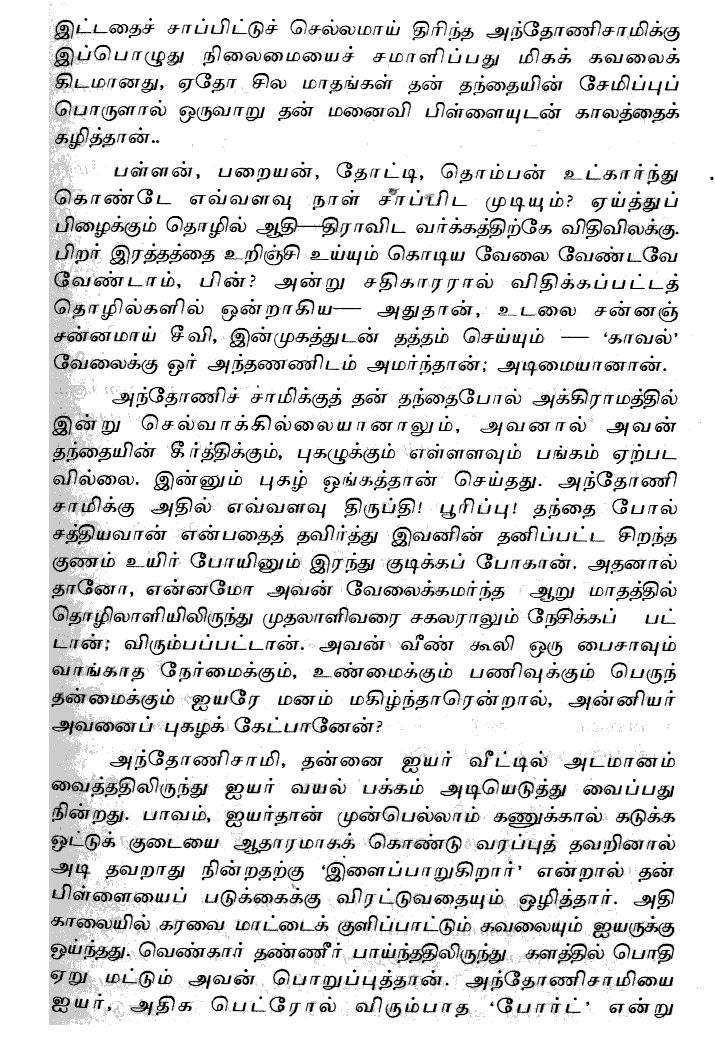 இட்டதைச் சாப்பிட்டுச் செல்லமாய் திரிந்த அந்தோணிசாமிக்கு
இப்பொழுது நிலைமையைச் சமாளிப்பது மிகக் கவலைக்
கிடமானது, ஏதோ சில மாதங்கள் தன் தந்தையின் சேமிப்புப்
பொருளால் ஒருவாறு தன் மனைவி பிள்ளையுடன் காலத்தைக்
கழித்தான்..
பள்ளன், பறையன், தோட்டி, தொம்பன் உட்கார்ந்து
கொண்டே எவ்வளவு நாள் சாப்பிட முடியும்? ஏய்த்துப்
பிழைக்கும் தொழில் ஆதி—திராவிட வர்க்கத்திற்கே விதிவிலக்கு.
பிறர் இரத்தத்தை உறிஞ்சி உய்யும் கொடிய வேலை வேண்டவே
வேண்டாம், பின்? அன்று சதிகாரரால் விதிக்கப்பட்டத்
தொழில்களில் ஒன்றாகிய— அதுதான், உடலை சன்னஞ்
சன்னமாய் சீவி, இன்முகத்துடன் தத்தம் செய்யும் — ‘காவல்’
வேலைக்கு ஓர் அந்தணணிடம் அமர்ந்தான்; அடிமையானான்.
அந்தோணிச் சாமிக்குத் தன் தந்தைபோல் அக்கிராமத்தில்
இன்று செல்வாக்கில்லையானாலும், அவனால் அவன்
தந்தையின் கீர்த்திக்கும், புகழுக்கும் எள்ளளவும் பங்கம் ஏற்பட
வில்லை. இன்னும் புகழ் ஓங்கத்தான் செய்தது. அந்தோணி
சாமிக்கு அதில் எவ்வளவு திருப்தி! பூரிப்பு! தந்தை போல்
சத்தியவான் என்பதைத் தவிர்த்து இவனின் தனிப்பட்ட சிறந்த
குணம் உயிர் போயினும் இரந்து குடிக்கப் போகான். அதனால்
தானோ, என்னமோ அவன் வேலைக்கமர்ந்த ஆறு மாதத்தில்
தொழிலாளியிலிருந்து முதலாளிவரை சகலராலும் நேசிக்கப் பட்
டான்; விரும்பப்பட்டான். அவன் வீண் கூலி ஒரு பைசாவும்
வாங்காத நேர்மைக்கும், உண்மைக்கும் பணிவுக்கும் பெருந்
தன்மைக்கும் ஐயரே மனம் மகிழ்ந்தாரென்றால், அன்னியர்
அவனைப் புகழக் கேட்பானேன்?
அந்தோணிசாமி, தன்னை ஐயர் வீட்டில் அடமானம்
வைத்ததிலிருந்து ஐயர் வயல் பக்கம் அடியெடுத்து வைப்பது
நின்றது. பாவம், ஐயர்தான் முன்பெல்லாம் கணுக்கால் கடுக்க
ஒட்டுக் குடையை ஆதாரமாகக் கொண்டு வரப்புத் தவறினால்
அடி தவறாது நின்றதற்கு ‘இளைப்பாறுகிறார்’ என்றால் தன்
பிள்ளையைப் படுக்கைக்கு விரட்டுவதையும் ஒழித்தார். அதி
காலையில் கரவை மாட்டைக் குளிப்பாட்டும் கவலையும் ஐயருக்கு
ஓய்ந்தது. வெண்கார் தண்ணீர் பாய்ந்ததிலிருந்து களத்தில் பொதி
ஏறு மட்டும் அவன் பொறுப்புத்தான். அந்தோணிசாமியை
ஐயர், அதிக பெட்ரோல் விரும்பாத ‘போர்ட்’ என்று